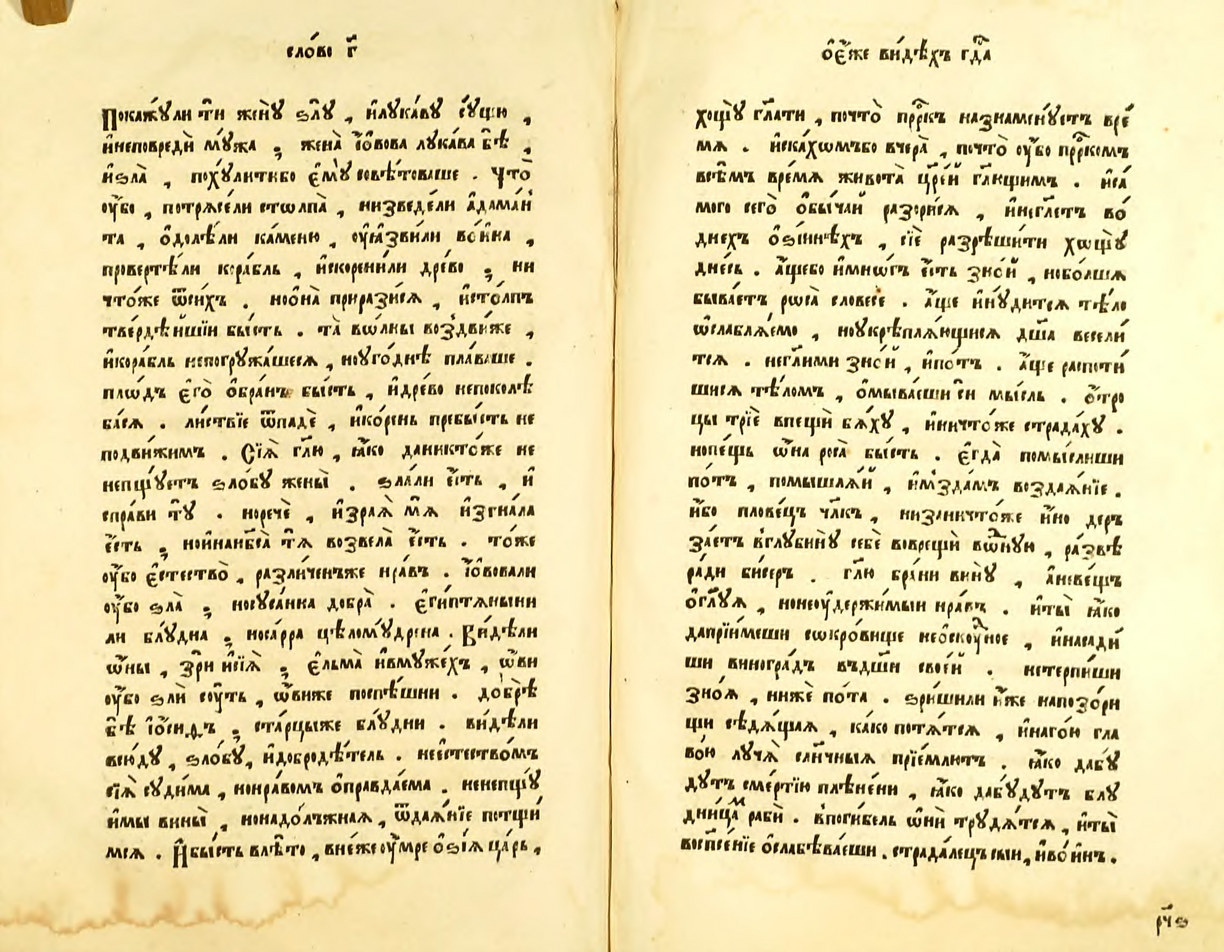 сло́во г҃
Покажу́ли ти жену̀ ѕлу̀ , и҆лука́ву су́щю ,
и҆неповреди̇̀ му́жа ; жена̀ і҆о́вова лука́ва бѣ̀ ,
и҆ѕла̀ , поху́литибо є҆му̀ совѣ́товаше . Что̀
ᲂу҆́бо , потрѧсе́ли столпа̀ , низведе́ли а҆дама́н
та , ѡ҆долѣ́ли ка́меню , ᲂу҆ꙗ҆зви́ли во́ина ,
провертѣ́ли кора́бль , и҆скорени́ли дре́во ; ни
что́же ѿси́хъ . ноо҆на̀ прирази́сѧ , и҆сто́лпъ
тверде́йшїи бы́сть . та̀ во́лны воздви́же ,
и҆кора́бль непогружа́шесѧ , ноуго́днѣ пла́ваше .
пло́дъ є҆го̀ ѡ҆бра́нъ бы́сть , и҆дре́во непоколѣ
ба́сѧ . ли́ствїе ѿпадѐ , и҆ко́рень пребы́сть не
подви́жимъ . Сїѧ̀ гл҃ю , ꙗ҆́ко данихто́же не
непщу́етъ ѕло́бу жены̀ . ѕла́ли є҆́сть , и҆
спра́ви ту̀ . норечѐ , и҆зра́ѧ мѧ̀ и҆згна́ла
є҆́сть ; нои҆нанб҃са̀ тѧ̀ возвела̀ є҆́сть . то́же
ᲂу҆́бо є҆стество̀ , разли́ченъже нра́въ . І҆о́вовали
ᲂу҆́бо ѕла̀ ; носуса́нна добра̀ . є҆гиптѧ́ныни
ли блу́дна ; носа́рра цѣлому́дрена . Ви́дѣли
ѡ҆́ны , зрѝ и҆сїѧ̀ ; є҆льма̀ и҆вмуже́хъ , ѡ҆́ви
ᲂу҆́бо ѕлѝ су́ть , ѡ҆́виже поспѣ́шни . до́брѣ
бѣ̀ і҆о́сифъ ; ста́рцыже блу́дни . ви́дѣли
всю́ду , ѕло́бу , и҆добродѣ́тель . неесте́ство́мъ
сїѧ̀ суди́ма , нонра́вомъ ѡ҆правда́ема . ненепщу́
и҆мы̀ вины̀ , нонадо́лъжнаѧ , ѿдаѧ́нїе потщи́
мсѧ . И҆бы́сть влѣ́то , внеже ᲂу҆́мре ѻ҆зі́ѧ ца́рь ,
ѻ҆є҆́же ви́дѣхъ гдⷭ҇а
хощу̀ гл҃ати , почто̀ прⷪ҇ркъ назнамену́етъ вре́
мѧ . и҆ска́хомъбо вчера̀ , почто̀ ᲂу҆́бо прⷪ҇ркомъ
всѣ́мъ вре́мѧ живота̀ цр҃е́й гл҃ющимъ . и҆са́
мого сего̀ ѡ҆бы́чаи разори́сѧ , и҆негл҃етъ во́
днехъ ѻ҆зі́инѣхъ , сїѐ разрѣши́ти хощу̀
дне́сь . а҆́щебо и҆мно́гъ є҆́сть зно́й , нобо́лшѧ
быва́етъ роса̀ словесѐ . а҆́ще и҆ну́дитсѧ тѣ́ло
ѡ҆слаблѧ́емо , ноукрѣплѧ́ющисѧ дш҃а̀ весели́
тсѧ . негл҃и́ми зно́й , и҆по́тъ . а҆́ще распоти́
шисѧ тѣ́ломъ , ѡ҆мыва́еши си̇̀ мы́сль . ѻ҆́тро
цы трїѐ впещѝ бѧ́ху , и҆ничто́же страда́ху .
нопе́щь ѡ҆́на роса̀ бы́сть . є҆гда̀ помы́слиши
по́тъ , помышлѧ́й , и҆мзда́мъ воздаѧ́нїе .
и҆́бо плове́цъ чл҃къ , низаничто́же и҆́но дер
за́етъ вглубину̀ себѐ воврещѝ во́дную , ра́звѣ
ра́ди би́сера . гл҃ю бра́ни вину̀ , а҆неве́щъ
ѡ҆глу́ѧ , нонеᲂу҆держи́мыи нра́въ . и҆ты̀ ꙗ҆́ко
даприи́меши сокро́вище неѡ҆ску́дное , и҆насади́
ши виногра́дъ въдш҃и свое́й . нетерпи́ши
зно́ѧ , нижѐ по́та . ѕри́шили и҆́же напозо́ри
щи сѣдѧ́щаѧ , ка́ко потѧ́тсѧ , и҆наго́ю гла
во́ю лучѧ̀ со́лнчныѧ прїе́млютъ . ꙗ҆́ко дабу́
дутъ сме́ртїю плѣне́ни , ꙗ҆́ко дабу́дутъ блу
дни́цам рабѝ . в̾поги́бель ѡ҆́ни трудѧ́тсѧ , и҆ты̀
воспⷭ҇е́нїе ѡ҆слабѣва́еши . страда́лецъ сы́и , и҆во́инъ .
рч҃ѕ